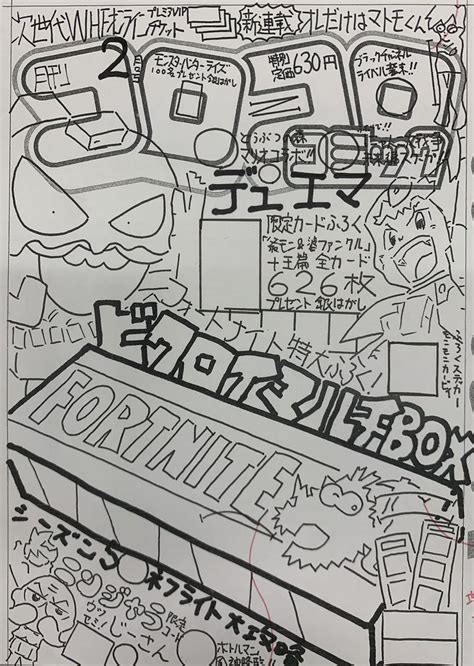 次世代WHFオンラインチケット
プレミアムVIP
新連載
オレだけはマトモくん
月刊
2
月号
コロコロ
モンスターハンターライズ
100名プレゼント銀はがし
特別
定価630円
ブラックチャンネル
ライバル襲来!!
どうぶつの森
マリオコラボ!!
デュエマ
限定カードふろく
十王篇全カード
626枚
プレゼント銀はがし
フォートナイト特大ふろく!
ふろくステッカー
ビックロイマルチBOX
FORTNITE
シーズン5
ネフライト大攻略
ニンジャラ
限定
コード
ウソ
セミ
じーさん
ボトルマン